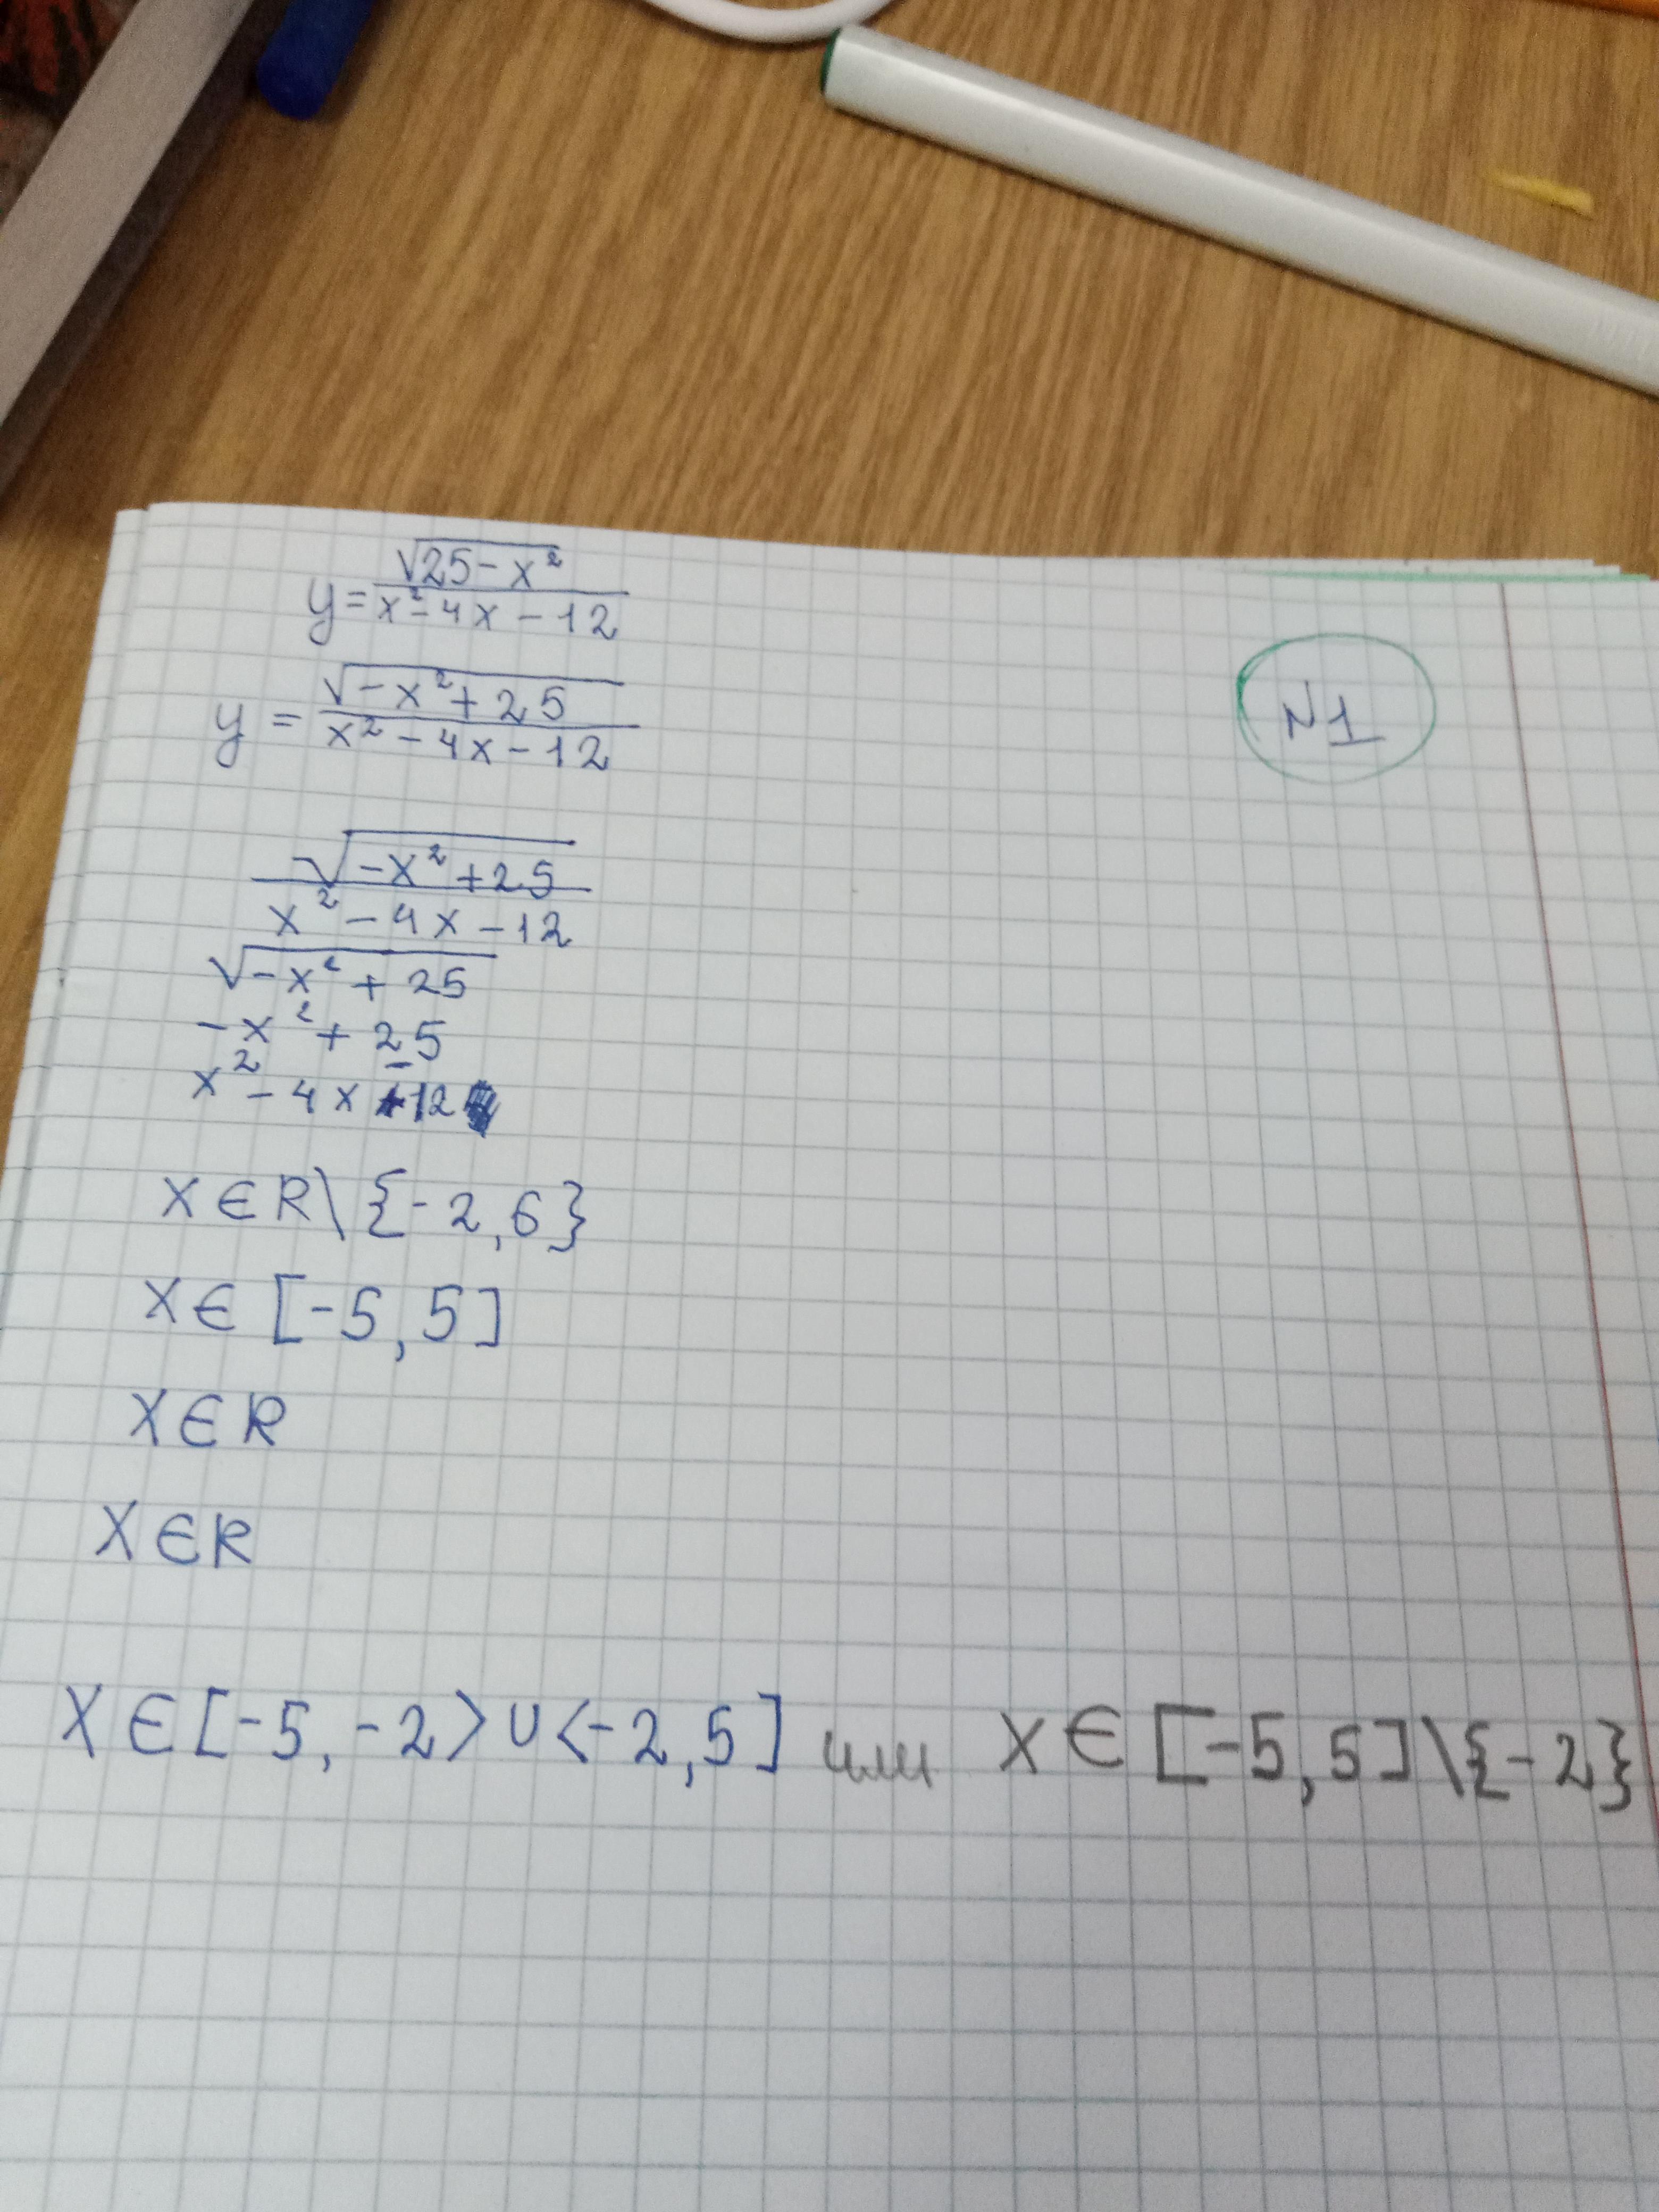 y = √(25 - x²) / (x² - 4x - 12)
N1
y = √(-x² + 25) / (x² - 4x - 12)
√(-x² + 25) / (x² - 4x - 12)
√(-x² + 25)
-x² + 25
x² - 4x - 12
x ∈ R \ {-2, 6}
x ∈ [-5, 5]
x ∈ R
x ∈ R
x ∈ [-5, -2> ∪ <-2, 5] или x ∈ [-5, 5] \ {-2}